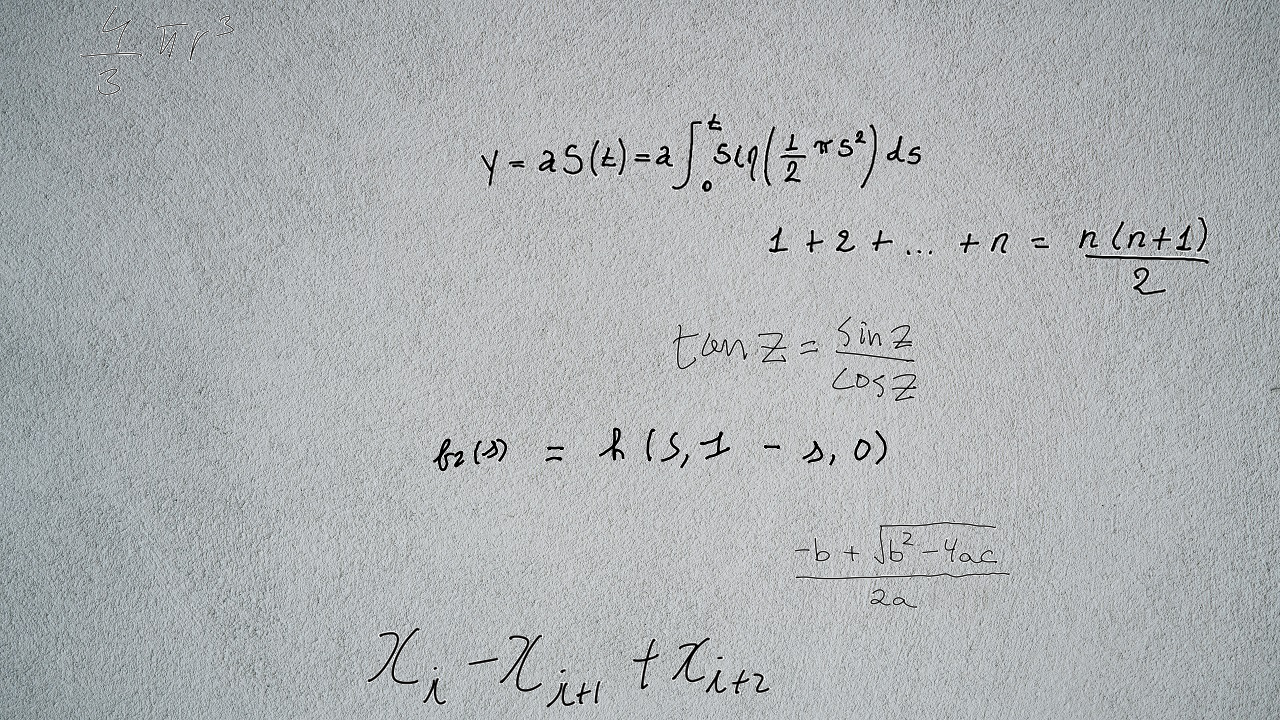 \frac{4}{3} \pi r^3
y = a S(t) = a \int_0^t \sin\left(\frac{1}{2} \pi s^2\right) ds
1 + 2 + \ldots + n = \frac{n(n+1)}{2}
\tan z = \frac{\sin z}{\cos z}
b_2(s) = h(s, 1 - s, 0)
\frac{-b + \sqrt{b^2 - 4ac}}{2a}
x_i - x_{i+1} + x_{i+2}